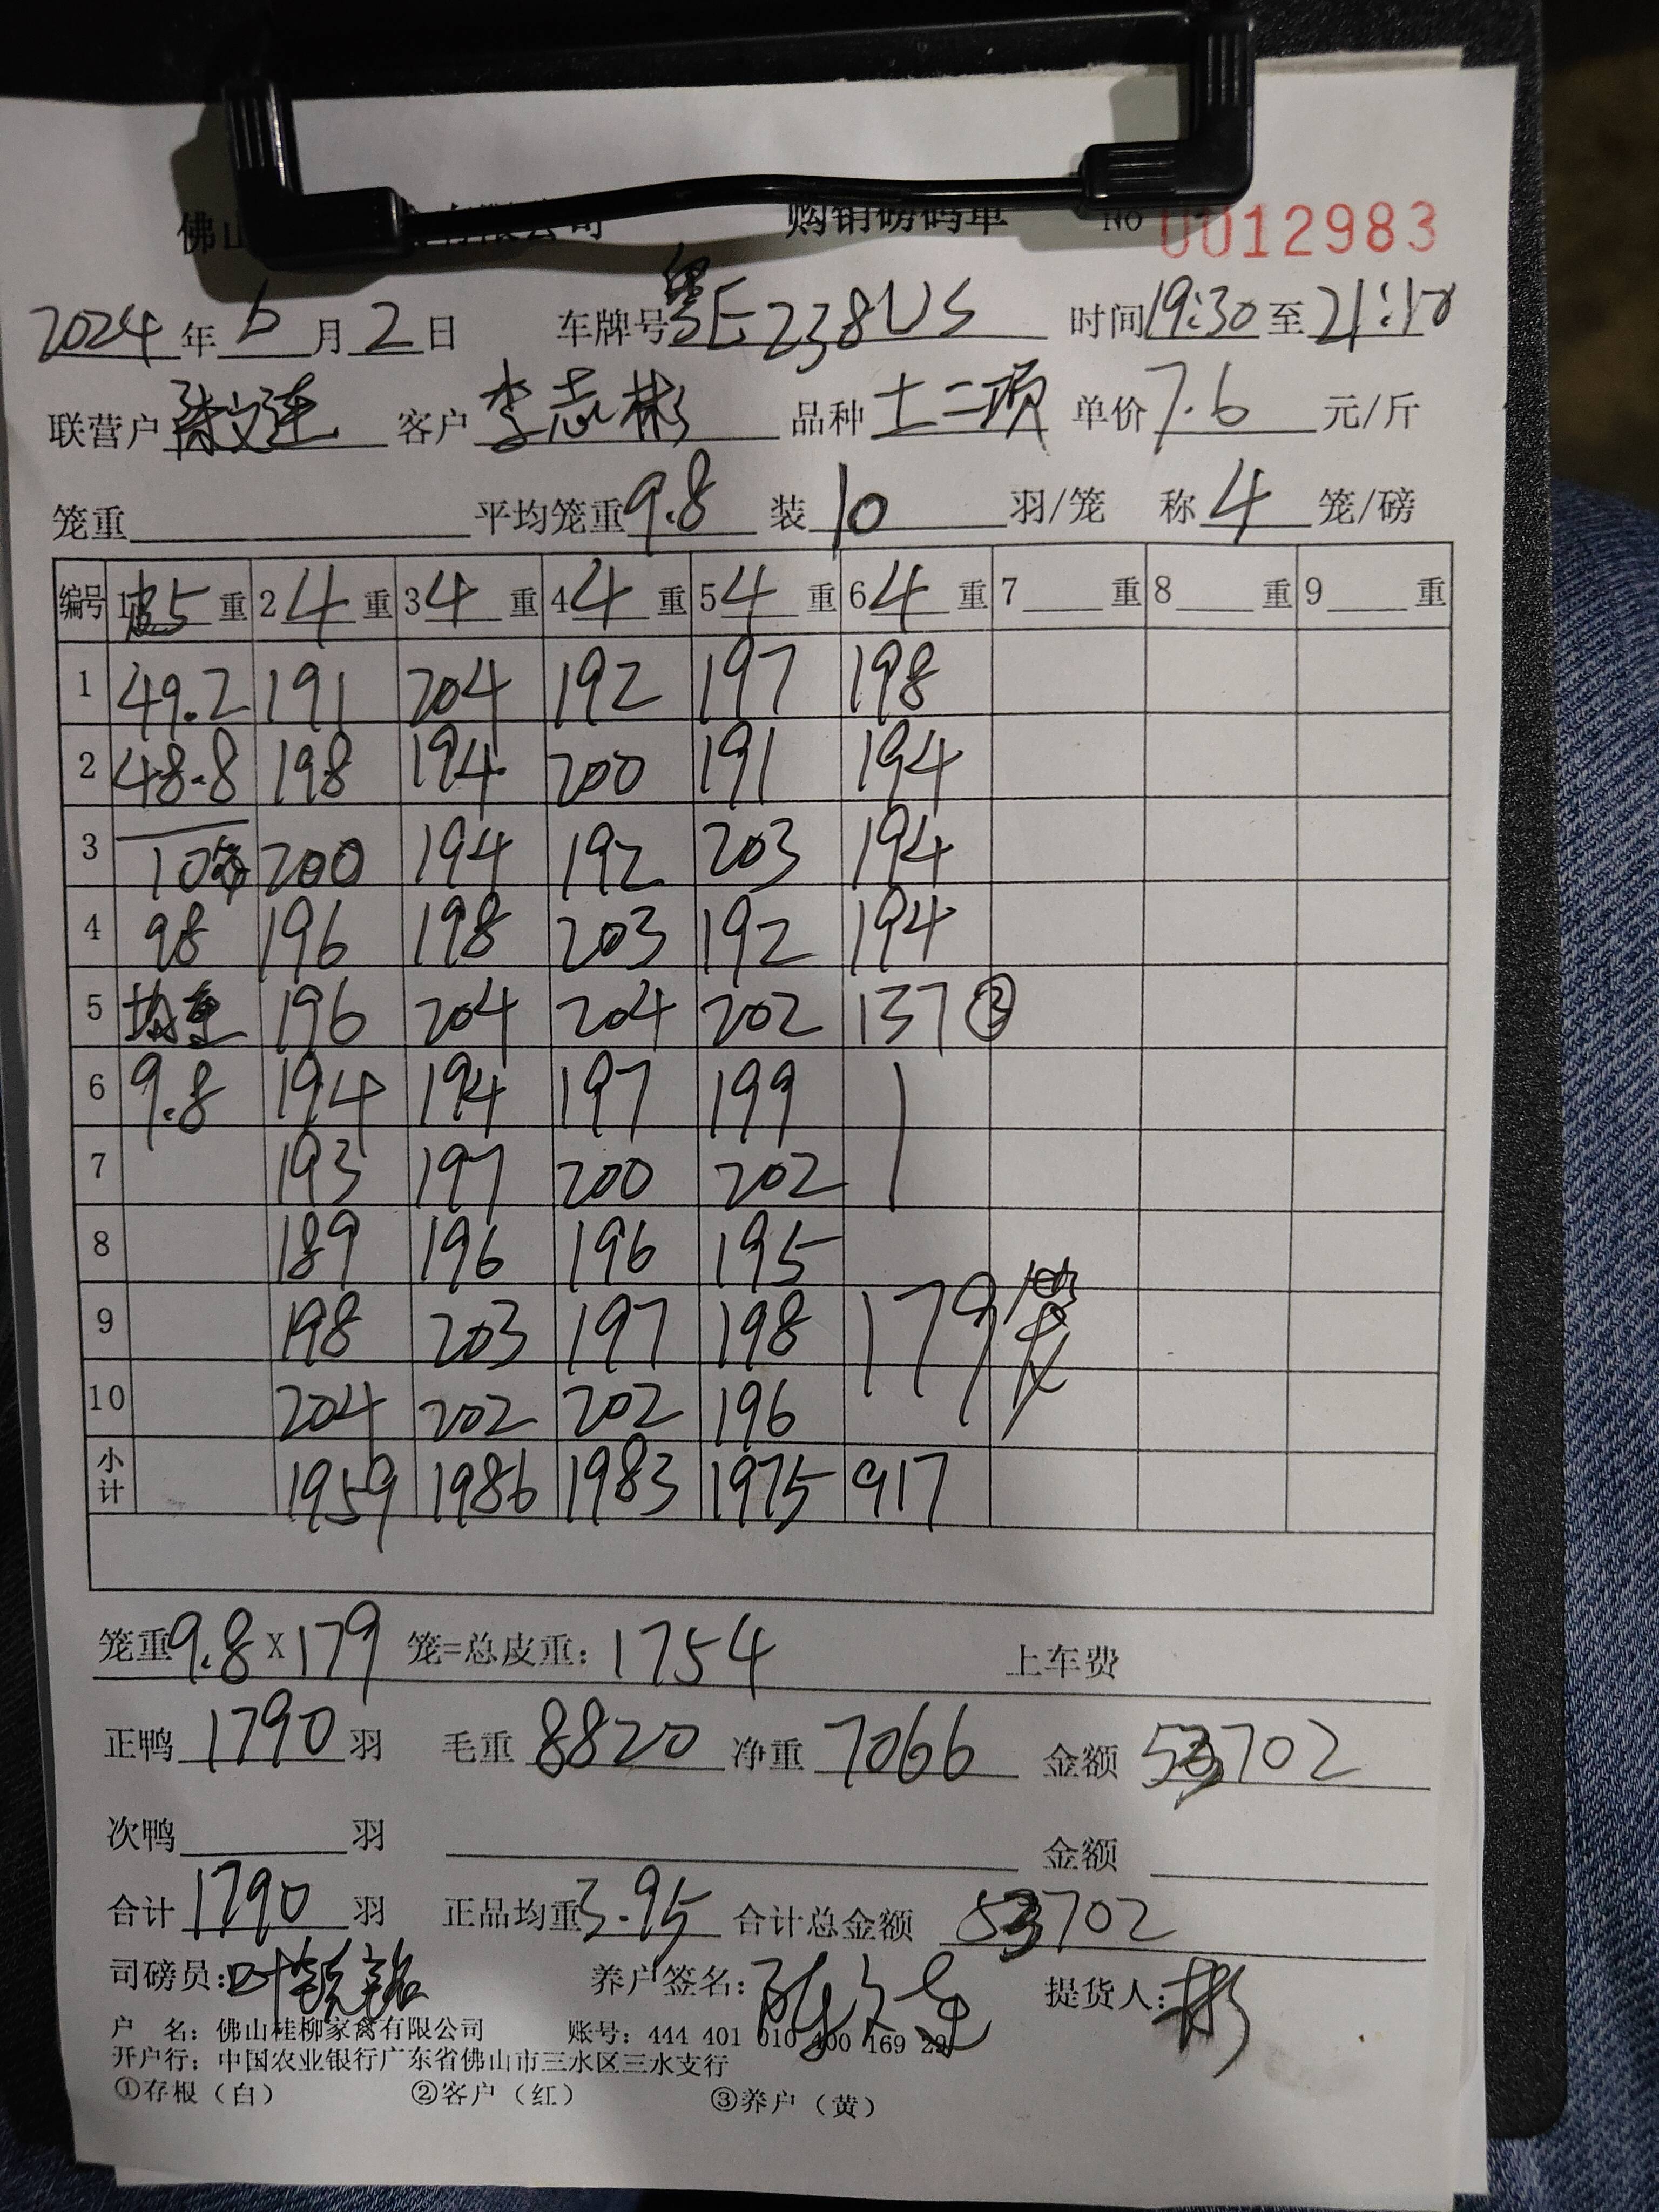 佛山 有限公司 购销磅码单 NO 0012983
2024年6月2日 车牌号粤E238US 时间19:30至21:10
联营户 陈文连 客户 李志彬 品种 土二项 单价7.6元/斤
笼重 平均笼重9.8 装10羽/笼 称4笼/磅
编号 1皮5重 2 4重 3 4重 4 4重 5 4重 6 4重 7 重 8 重 9 重
1 49.2 191 204 192 197 198
2 48.8 198 194 200 191 194
3 10 200 194 192 203 194
4 98 196 198 203 192 194
5 均重 196 204 204 202 137 ③
6 9.8 194 194 197 199
7 193 197 200 202
8 189 196 196 195
9 198 203 197 198 179笼
10 204 202 202 196
小计 1959 1986 1983 1975 917
笼重9.8X179笼=总皮重:1754 上车费
正鸭1790羽 毛重8820 净重7066 金额53702
次鸭 羽 金额
合计1790羽 正品均重3.95 合计总金额53702
司磅员: 养户签名:陈文连 提货人:彬
户 名: 佛山桂柳家禽有限公司 账号: 444 401 010 400 169 22
开户行: 中国农业银行广东省佛山市三水区三水支行
①存根(白) ②客户(红) ③养户(黄)